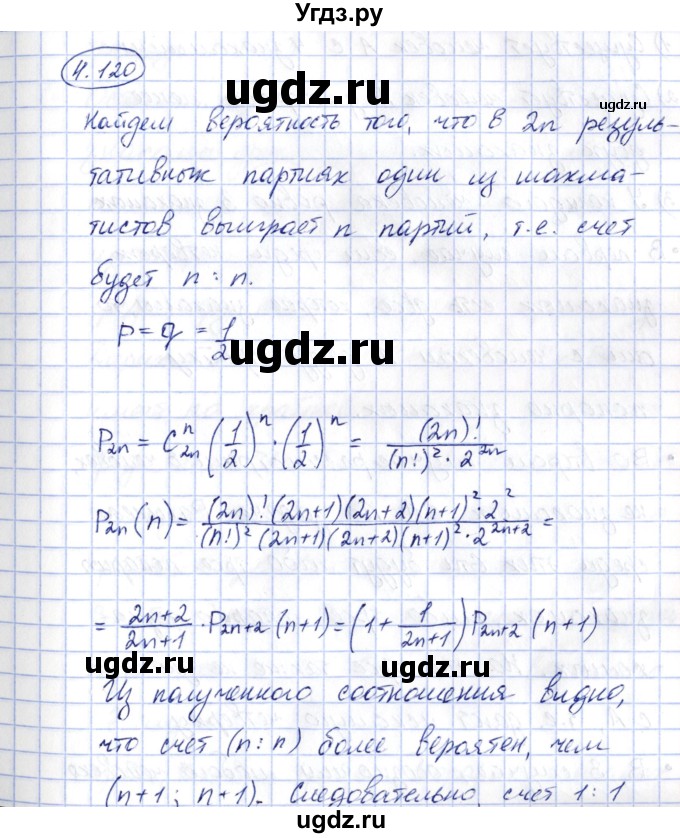 Угдз.ру
4.120
ugdz.ru
ugdz.ru
Найдем вероятность того, что в 2n резуль-
тативных партиях один из шахма-
тистов выиграет n партий, т.е. счет
будет n : n.
p = q = 1/2
ugdz.ru
P₂ₙ = C₂ₙⁿ (1/2)ⁿ · (1/2)ⁿ = (2n)! / ((n!)² · 2²ⁿ)
P₂ₙ(n) = (2n)! (2n+1)(2n+2)(n+1)² · 2² / ((n!)² (2n+1)(2n+2)(n+1)² · 2²ⁿ⁺²) =
= (2n+2)/(2n+1) · P₂ₙ₊₂(n+1) = (1 + 1/(2n+1)) P₂ₙ₊₂(n+1)
ugdz.ru
ugdz.ru
Из полученного соотношения видно,
что счет (n : n) более вероятен, чем
(n+1; n+1). Следовательно, счет 1 : 1
ugdz.ru
Угдз.ру